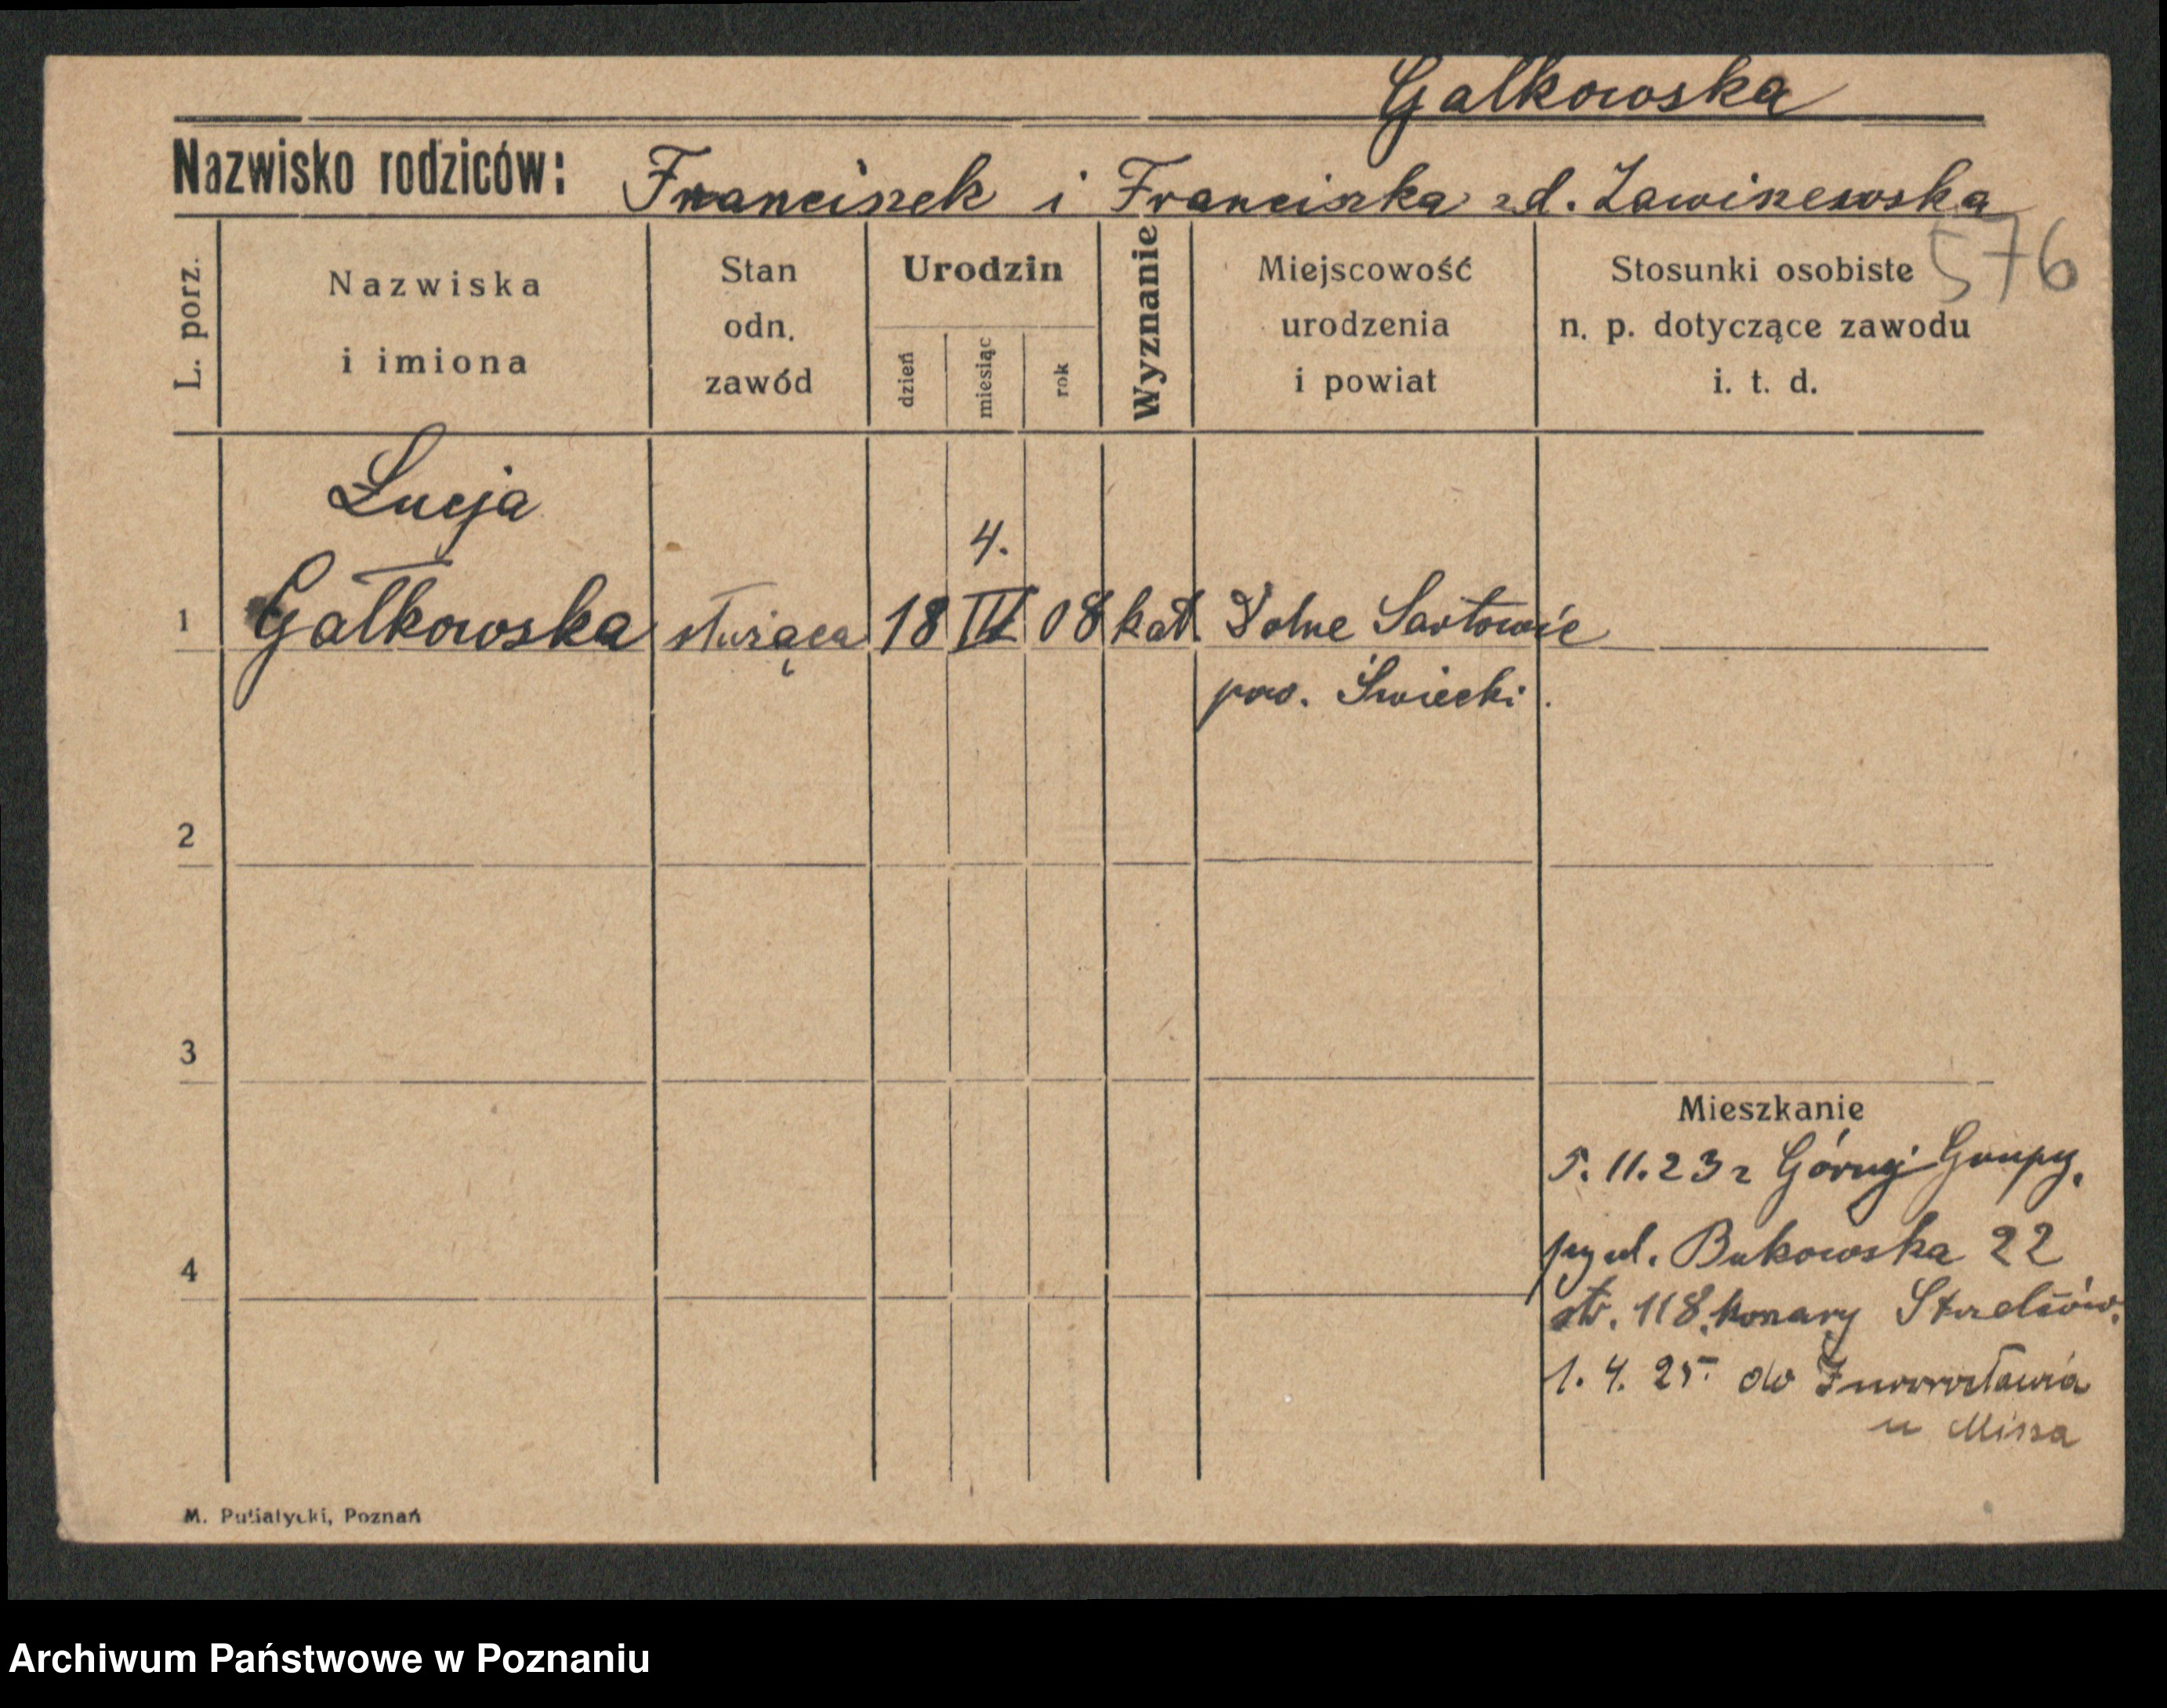 Gałkowska
Nazwisko rodziców: Franciszek i Franciszka zd. Zawiszewska
576
L. porz.
Nazwiska
i imiona
Stan
odn.
zawód
Urodzin
dzień
miesiąc
rok
Wyznanie
Miejscowość
urodzenia
i powiat
Stosunki osobiste
n. p. dotyczące zawodu
i. t. d.
Łucja
4.
1 Gałkowska służąca 18 08 kat. Dolne Sartowie
pow. Świecki.
2
3
Mieszkanie
5. 11. 23 z Górnej Grupy.
ul. Bukowska 22
4
str. 118.
1. 4. 25. do Inowrocławia
u Missa
M. Putiatycki, Poznań
Archiwum Państwowe w Poznaniu